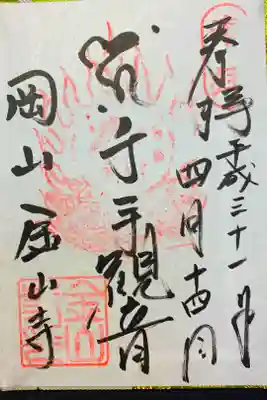 奉拝 平成三十一年
四月十四日
千手観音
岡山 金山寺